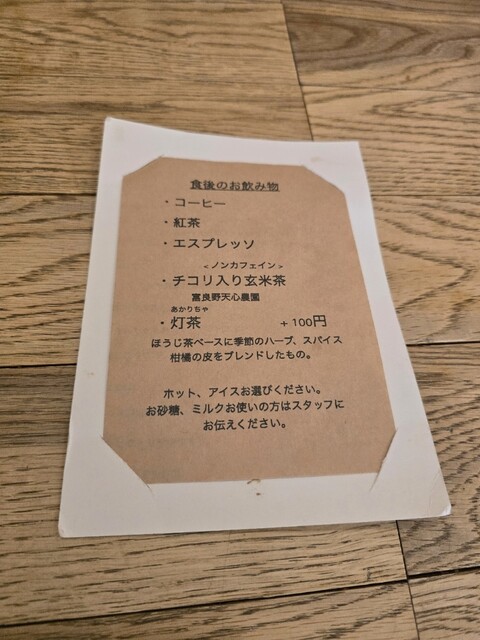 食後のお飲み物
・コーヒー
・紅茶
・エスプレッソ
<ノンカフェイン>
・チコリ入り玄米茶
富良野天心農園
あかりちゃ
・灯茶 +100円
ほうじ茶ベースに季節のハーブ、スパイス
柑橘の皮をブレンドしたもの。
ホット、アイスお選びください。
お砂糖、ミルクお使いの方はスタッフに
お伝えください。